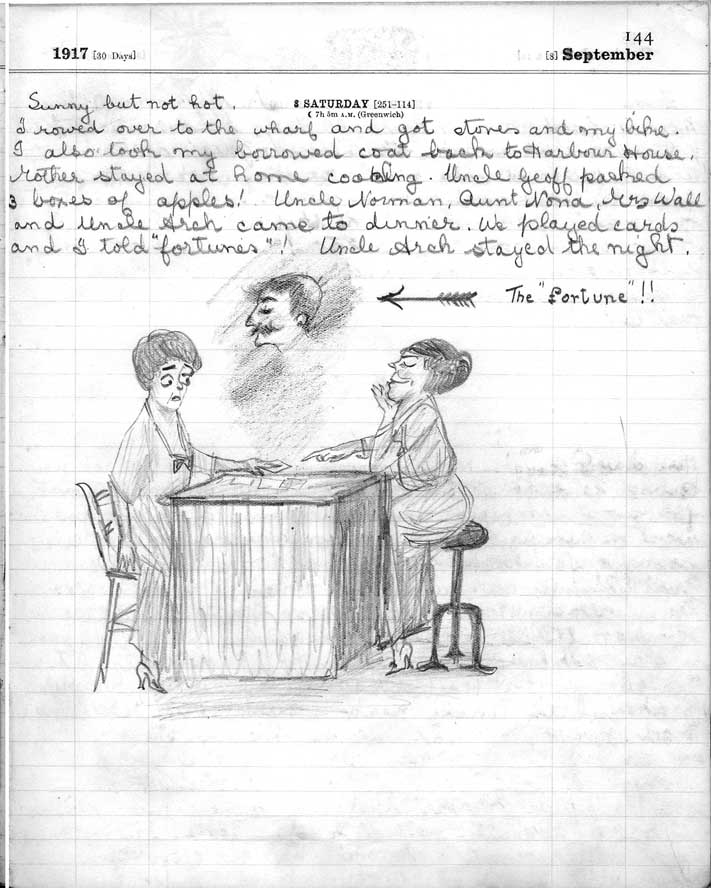 144
1917 [30 Days] [8] September
Sunny but not hot. 8 SATURDAY [251-114]
☾ 7h 5m A.M. (Greenwich)
I rowed over to the wharf and got stores and my bike.
I also took my borrowed coat back to Harbour House.
Mother stayed at home cooking. Uncle Geoff packed
3 boxes of apples! Uncle Norman, Aunt Nona, Mrs Wall
and Uncle Arch came to dinner. We played cards
and I told "fortunes"! Uncle Arch stayed the night.
The "fortune"!!